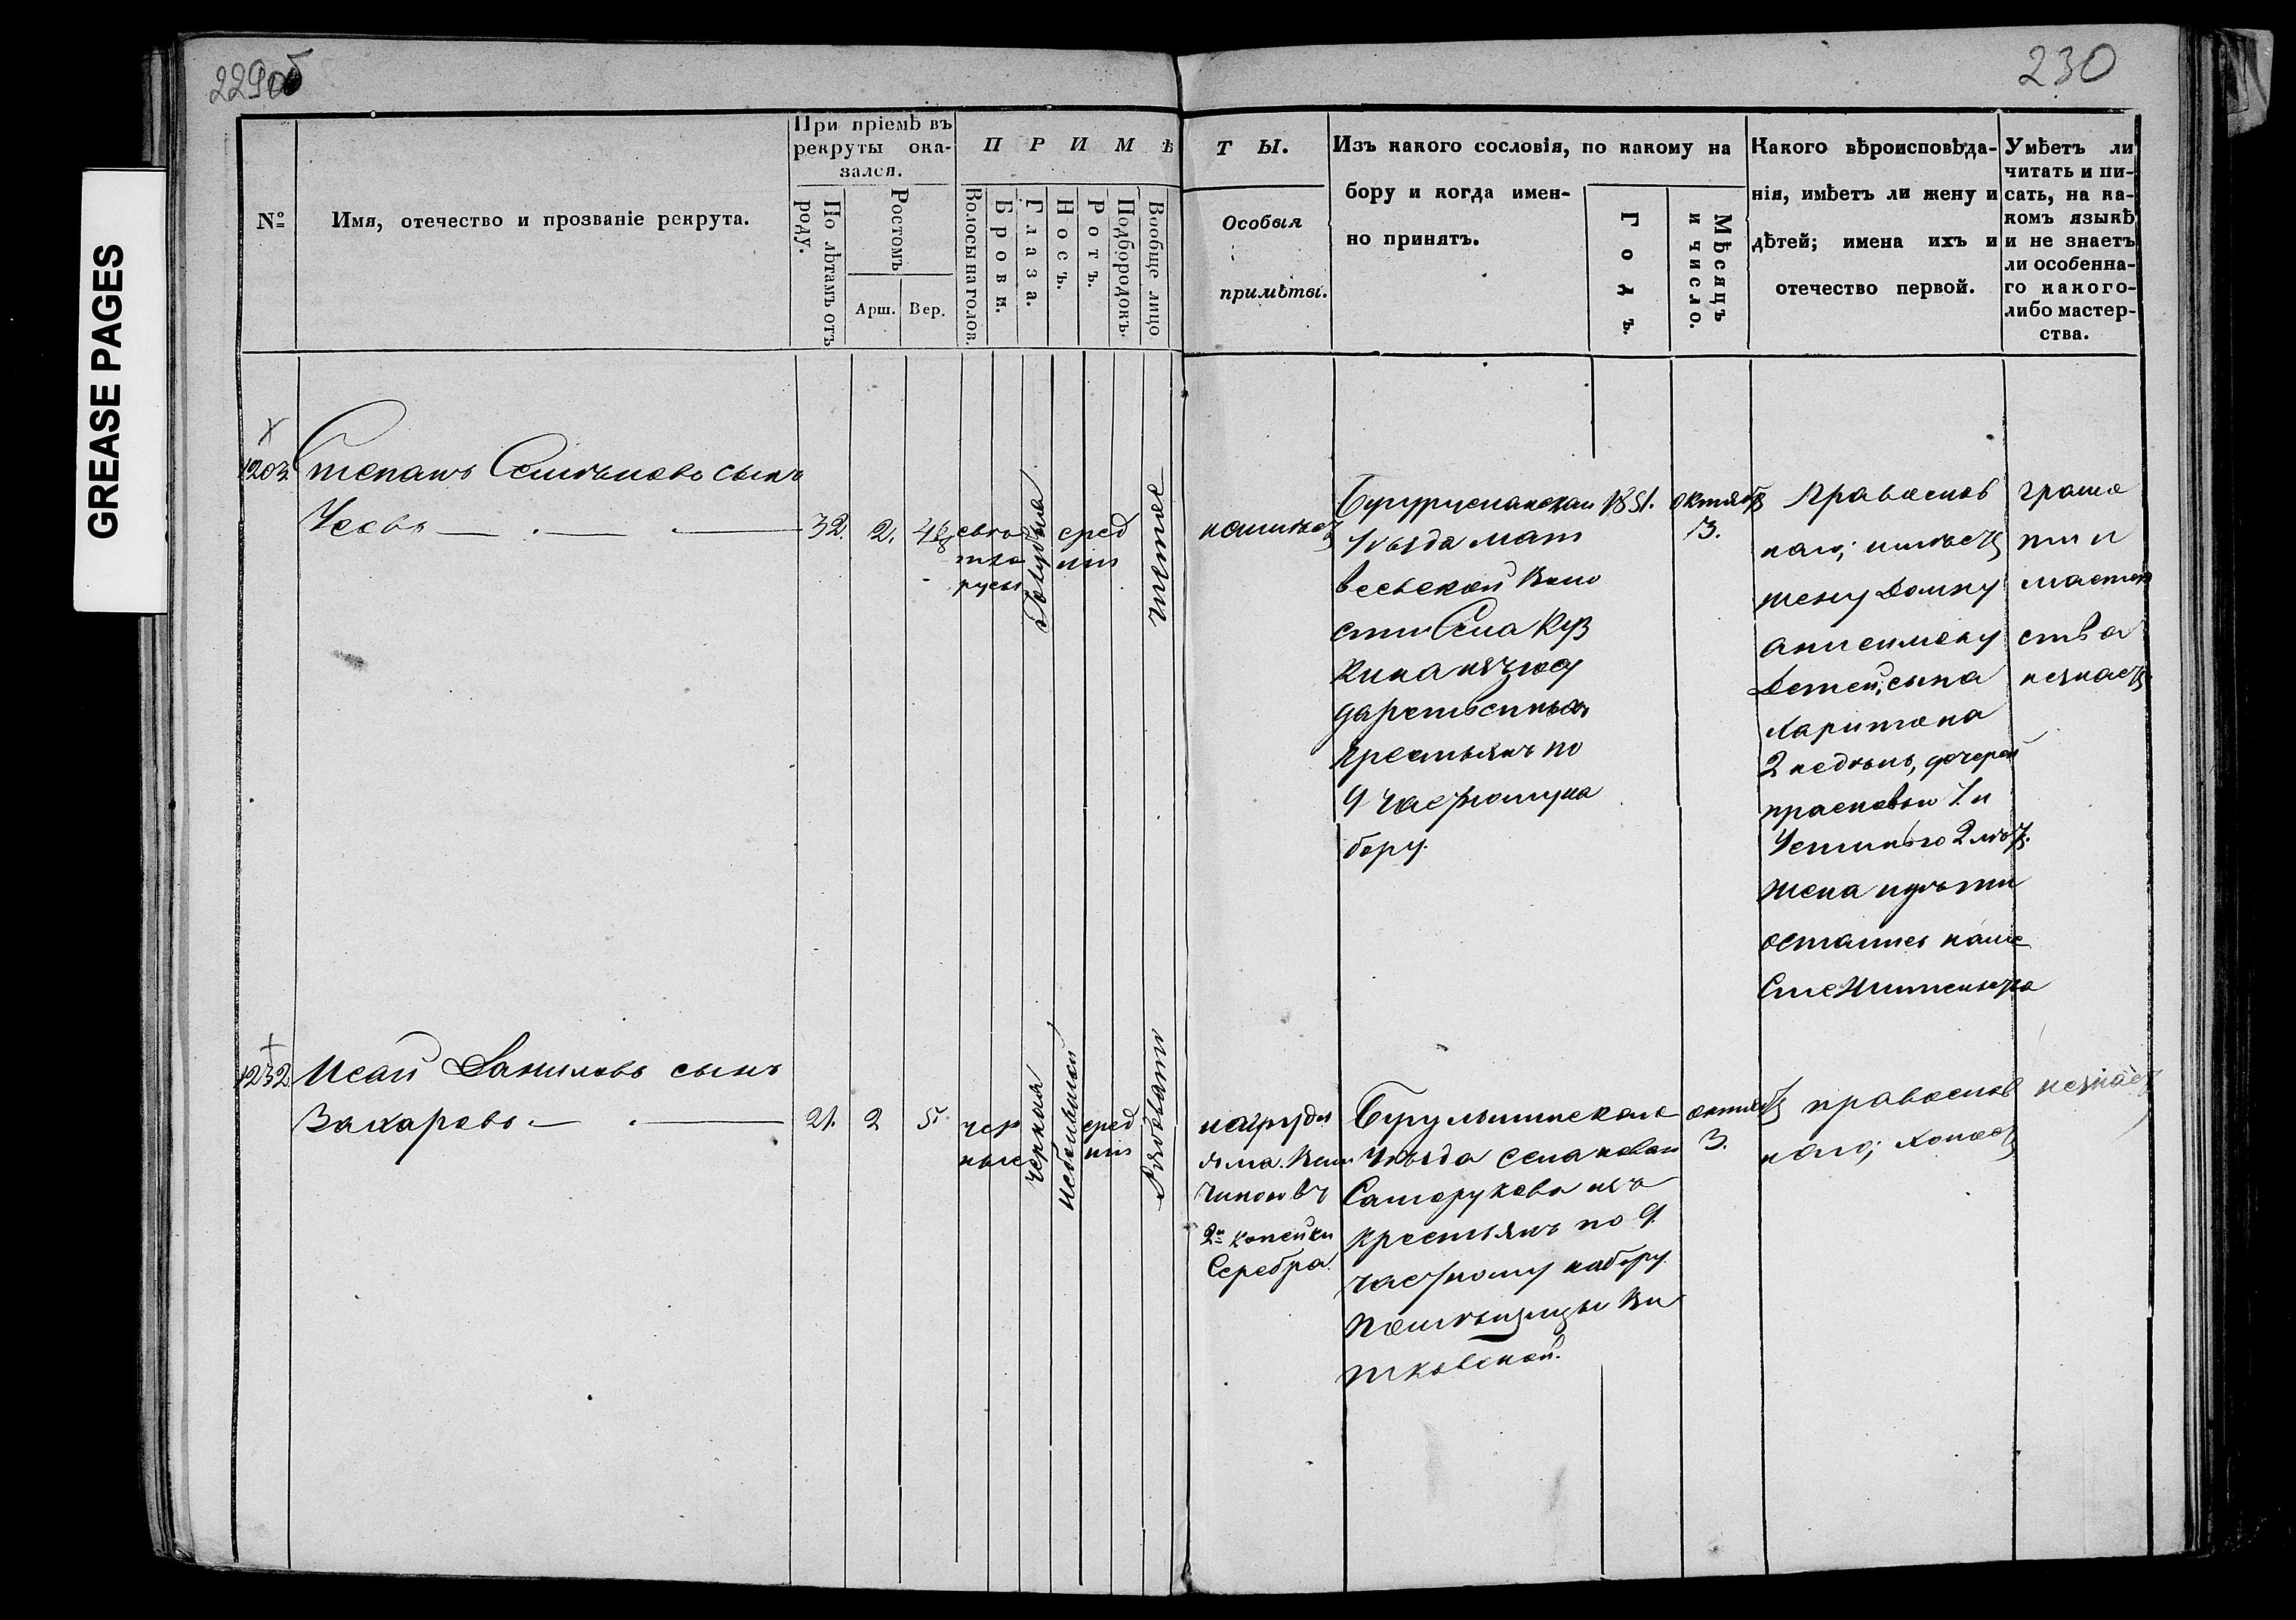 229об
230
GREASE PAGES
№
Имя, отечество и прозваніе рекрута.
При пріемѣ въ
рекруты ока-
зался.
По лѣтамъ отъ
роду.
Ростомъ
Арш.
Вер.
П Р И М Ѣ
Волосы на голов.
Брови.
Глаза.
Носъ.
Ротъ.
Подбородокъ.
Вообще лицо
Т Ы.
Особыя
примѣты.
Изъ какого сословія, по какому на
бору и когда имен-
но принятъ.
Годъ.
Мѣсяцъ
и число.
Какого вѣроисповѣда-
нія, имѣетъ ли жену и
дѣтей; имена ихъ и
отечество первой.
Умѣетъ ли
читать и пи-
сать, на ка-
комъ языкѣ
и не знаетъ
ли особенна-
го какого-
либо мастер-
ства.
1203
Степанъ Семѣновъ сынъ
32. 2.
свѣ
тло
русы
сред
ніи
чистое
неимѣетъ
Бугурусланскаго
уѣзда Мат
веевской воло
сти Села Куз
кина изъ госу
дарственныхъ
крестьянъ по
9 частному на
бору.
1851.
октября
3.
Православ
наго; имѣетъ
жену Домну
Анисимову
детей, сына
Харитона
2 недѣль, дочерей
Прасковью 1. и
Устинью 2 лѣтъ.
жена и дѣти
остались на ме
сте жительства
грамо
ти и
мастер
ства
незнаетъ
1232
Исай Даниловъ сынъ
Захаровъ
21. 2 5.
чер
ные
черная
небольшой
сред
ніи
Рябоватъ
на груди
2 копейки
Серебра.
Бугульминскаго
уѣзда села новаго
изъ
крестьянъ по 9.
частному набору
октября
3.
православ
наго; холостъ
незнаетъ